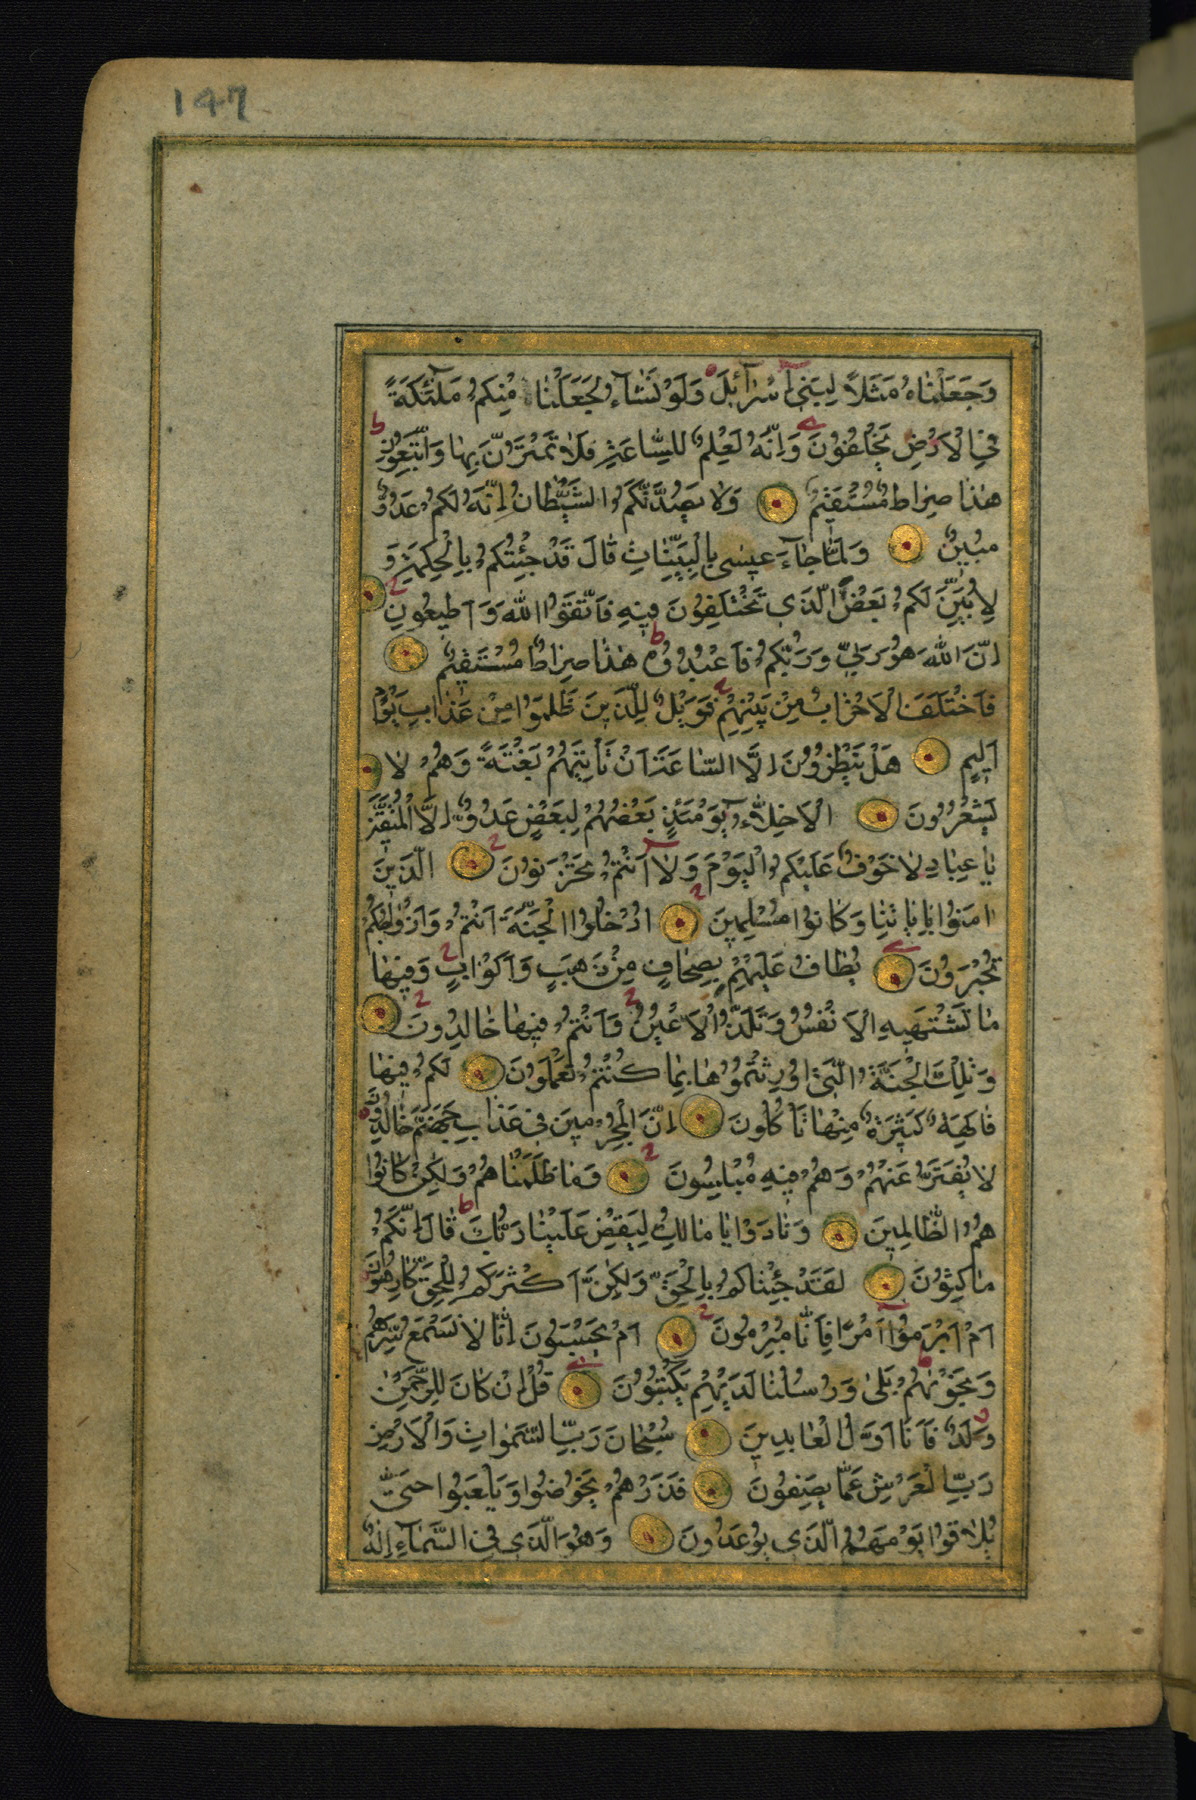 147
وَجَعَلْنَاهُ مَثَلًا لِبَنِي اِسْرَآئِلَ وَلَوْ نَشَآءُ لَجَعَلْنَا مِنْكُمْ مَلٰٓئِكَةً
فِي الْاَرْضِ يَخْلُفُونَ وَاِنَّهُ لَعِلْمٌ لِلسَّاعَةِ فَلَا تَمْتَرُنَّ بِهَا وَاتَّبِعُونِ
هٰذَا صِرَاطٌ مُسْتَقِيمٌ وَلَا يَصُدَّنَّكُمُ الشَّيْطَانُ اِنَّهُ لَكُمْ عَدُوٌّ
مُبِينٌ وَلَمَّا جَآءَ عِيسٰى بِالْبَيِّنَاتِ قَالَ قَدْ جِئْتُكُمْ بِالْحِكْمَةِ وَ
لِاُبَيِّنَ لَكُمْ بَعْضَ الَّذِي تَخْتَلِفُونَ فِيهِ فَاتَّقُوا اللّٰهَ وَاَطِيعُونِ
اِنَّ اللّٰهَ هُوَ رَبِّي وَرَبُّكُمْ فَاعْبُدُوهُ هٰذَا صِرَاطٌ مُسْتَقِيمٌ
فَاخْتَلَفَ الْاَحْزَابُ مِنْ بَيْنِهِمْ فَوَيْلٌ لِلَّذِينَ ظَلَمُوا مِنْ عَذَابِ يَوْمٍ
اَلِيمٍ هَلْ يَنْظُرُونَ اِلَّا السَّاعَةَ اَنْ تَأْتِيَهُمْ بَغْتَةً وَهُمْ لَا
يَشْعُرُونَ اَلْاَخِلَّآءُ يَوْمَئِذٍ بَعْضُهُمْ لِبَعْضٍ عَدُوٌّ اِلَّا الْمُتَّقِينَ
يَا عِبَادِ لَا خَوْفٌ عَلَيْكُمُ الْيَوْمَ وَلَآ اَنْتُمْ تَحْزَنُونَ الَّذِينَ
اٰمَنُوا بِاٰيَاتِنَا وَكَانُوا مُسْلِمِينَ اُدْخُلُوا الْجَنَّةَ اَنْتُمْ وَاَزْوَاجُكُمْ
تُحْبَرُونَ يُطَافُ عَلَيْهِمْ بِصِحَافٍ مِنْ ذَهَبٍ وَاَكْوَابٍ وَفِيهَا
مَا تَشْتَهِيهِ الْاَنْفُسُ وَتَلَذُّ الْاَعْيُنُ وَاَنْتُمْ فِيهَا خَالِدُونَ
وَتِلْكَ الْجَنَّةُ الَّتِي اُورِثْتُمُوهَا بِمَا كُنْتُمْ تَعْمَلُونَ لَكُمْ فِيهَا
فَاكِهَةٌ كَثِيرَةٌ مِنْهَا تَأْكُلُونَ اِنَّ الْمُجْرِمِينَ فِي عَذَابِ جَهَنَّمَ خَالِدُونَ
لَا يُفَتَّرُ عَنْهُمْ وَهُمْ فِيهِ مُبْلِسُونَ وَمَا ظَلَمْنَاهُمْ وَلٰكِنْ كَانُوا
هُمُ الظَّالِمِينَ وَنَادَوْا يَا مَالِكُ لِيَقْضِ عَلَيْنَا رَبُّكَ قَالَ اِنَّكُمْ
مَاكِثُونَ لَقَدْ جِئْنَاكُمْ بِالْحَقِّ وَلٰكِنَّ اَكْثَرَكُمْ لِلْحَقِّ كَارِهُونَ
اَمْ اَبْرَمُوٓا اَمْرًا فَاِنَّا مُبْرِمُونَ اَمْ يَحْسَبُونَ اَنَّا لَا نَسْمَعُ سِرَّهُمْ
وَنَجْوٰيهُمْ بَلٰى وَرُسُلُنَا لَدَيْهِمْ يَكْتُبُونَ قُلْ اِنْ كَانَ لِلرَّحْمٰنِ
وَلَدٌ فَاَنَا اَوَّلُ الْعَابِدِينَ سُبْحَانَ رَبِّ السَّمٰوَاتِ وَالْاَرْضِ
رَبِّ الْعَرْشِ عَمَّا يَصِفُونَ فَذَرْهُمْ يَخُوضُوا وَيَلْعَبُوا حَتّٰى
يُلَاقُوا يَوْمَهُمُ الَّذِي يُوعَدُونَ وَهُوَ الَّذِي فِي السَّمَآءِ اِلٰهٌ